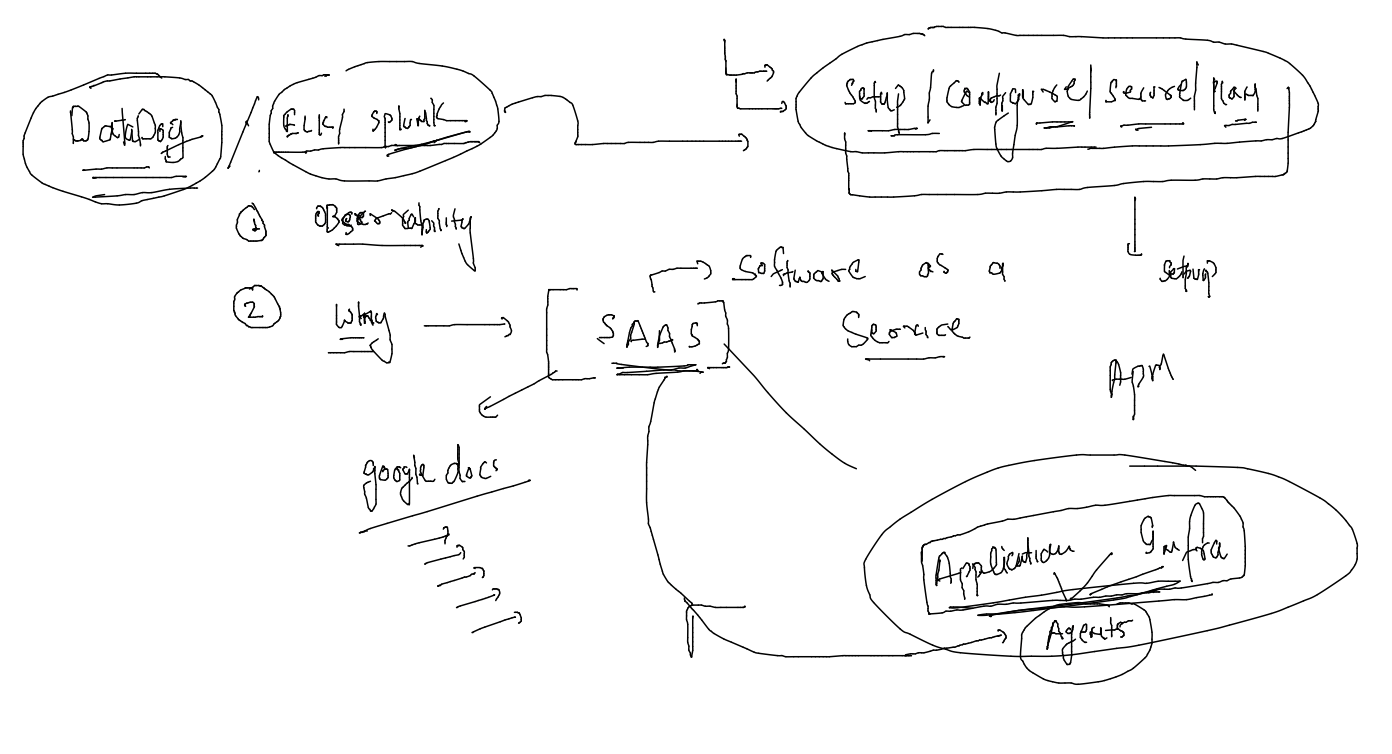 DataDog / ELK / Splunk
Setup / Configure / Secure / Plan
1 Observability
setup
2 Why
SAAS
Software as a
Service
google docs
APM
Application Infra
Agents